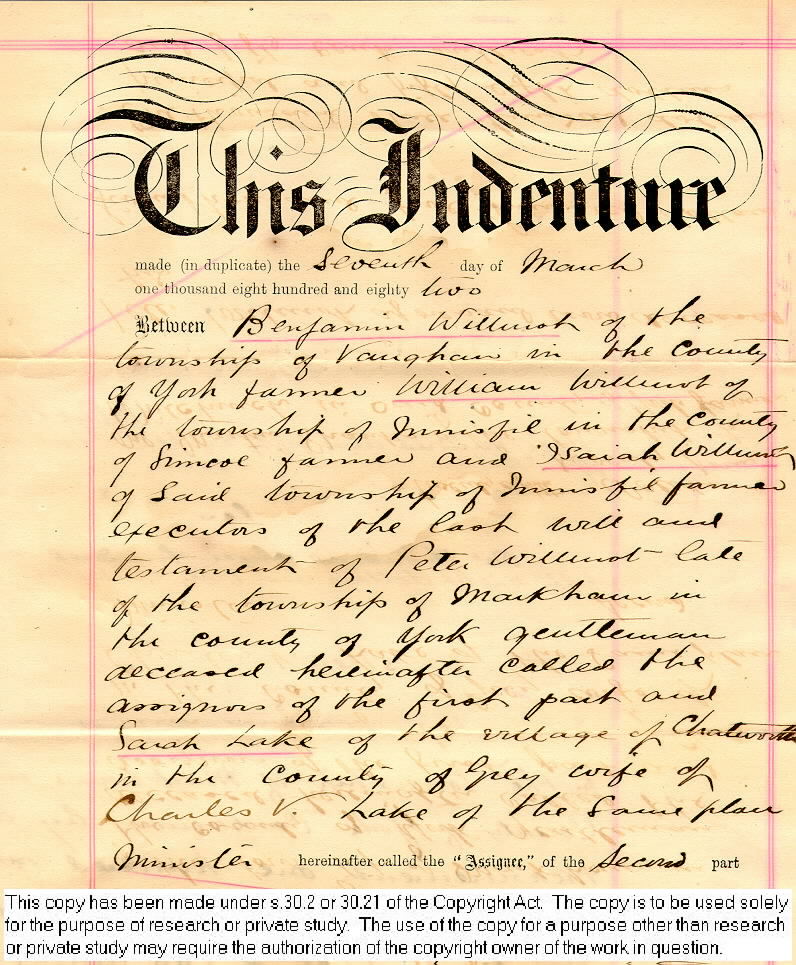 This Indenture
made (in duplicate) the Seventh day of March
one thousand eight hundred and eighty two
Between Benjamin Willmot of the
township of Vaughan in the County
of York farmer William Willmot of
the township of Innisfil in the County
of Simcoe farmer and Isaiah Willmot
of Said township of Innisfil farmer
executors of the last will and
testament of Peter Willmot late
of the township of Markham in
the county of York gentleman
deceased hereinafter called the
assignors of the first part and
Sarah Lake of the village of Chatworth
in the County of Grey wife of
Charles V. Lake of the Same place
Minister hereinafter called the "Assignee," of the Second part
This copy has been made under s.30.2 or 30.21 of the Copyright Act. The copy is to be used solely
for the purpose of research or private study. The use of the copy for a purpose other than research
or private study may require the authorization of the copyright owner of the work in question.